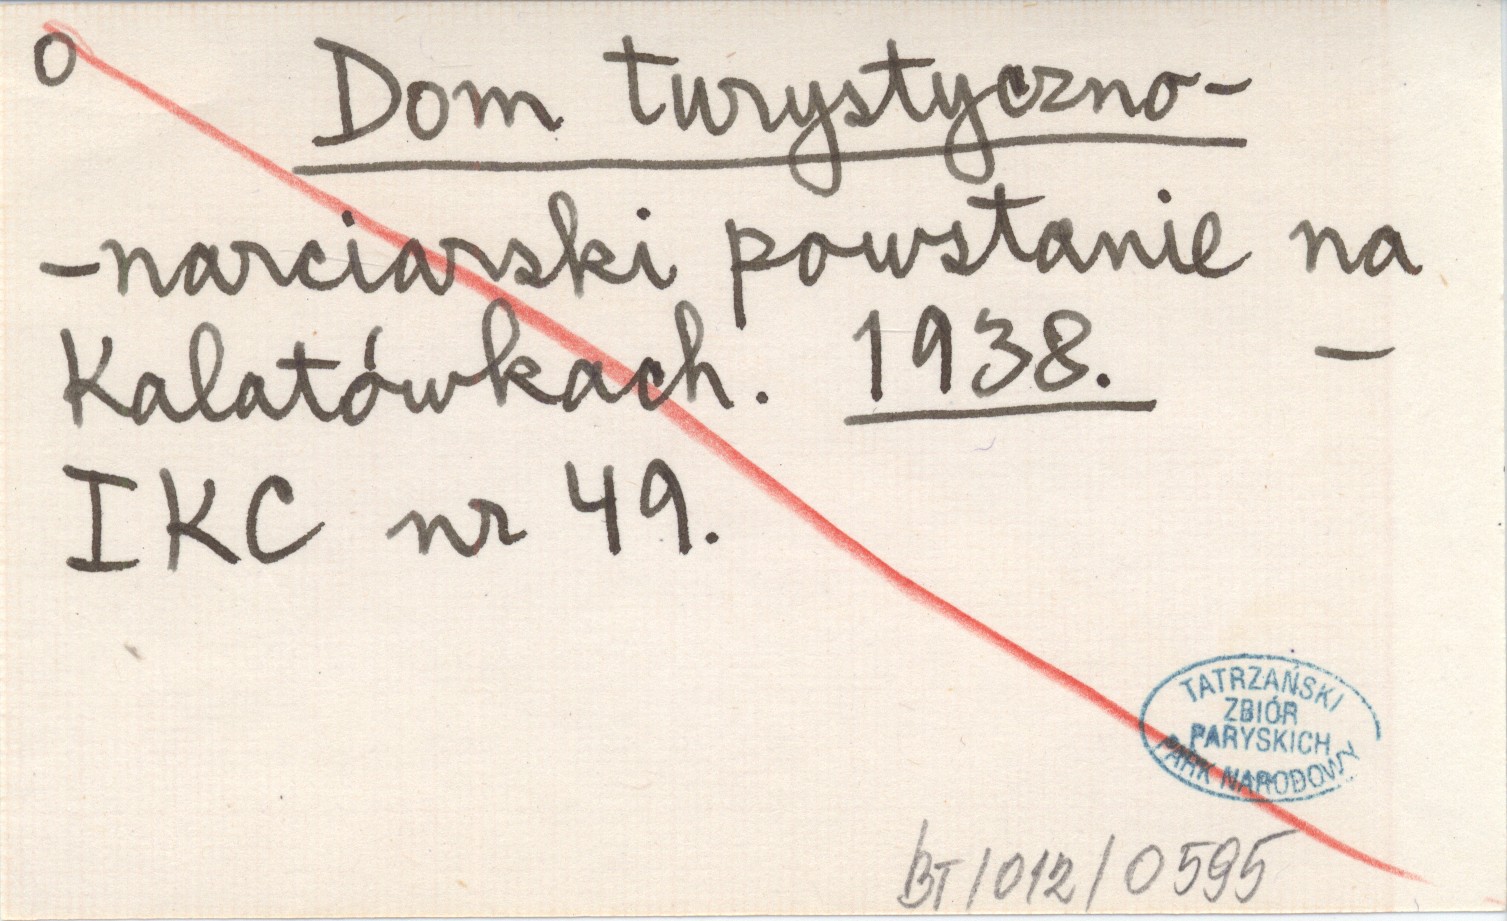 O Dom turystyczno-
-narciarski powstanie na
Kalatówkach. 1938. –
IKC nr 49.
TATRZAŃSKI
ZBIÓR
PARYSKICH
PARK NARODOWY
BT/012/0595